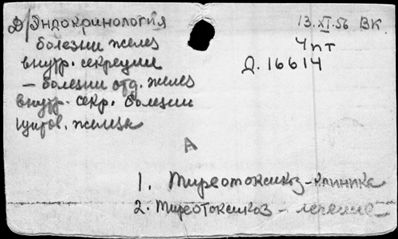 Д/Эндокринология
13.XI.56 ВК.
болезни желез
4 пт
внутр. секреции
Д. 16614
- болезни отд. желез
внутр. секр. болезни
щитов. железы
А
1. Тиреотоксикоз - клиника
2. Тиреотоксикоз - лечение